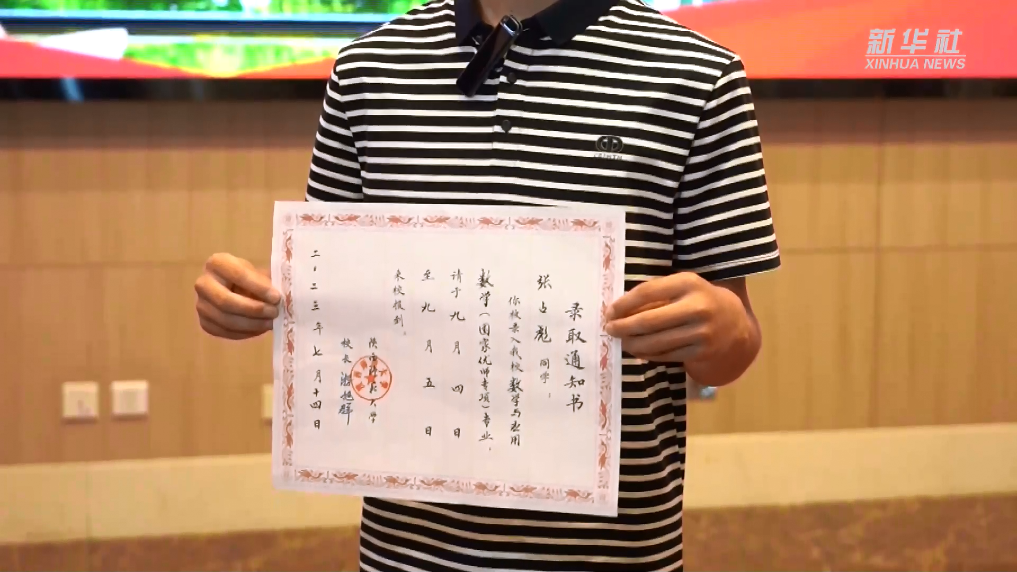 新华社
XINHUA NEWS
录取通知书
张占彪同学：
你被录入我校数学与应用
数学（国家优师专项）专业，
请于九月四日
至九月五日
来校报到。
陕西师范大学
校长 游旭群
二〇二三年七月十四日